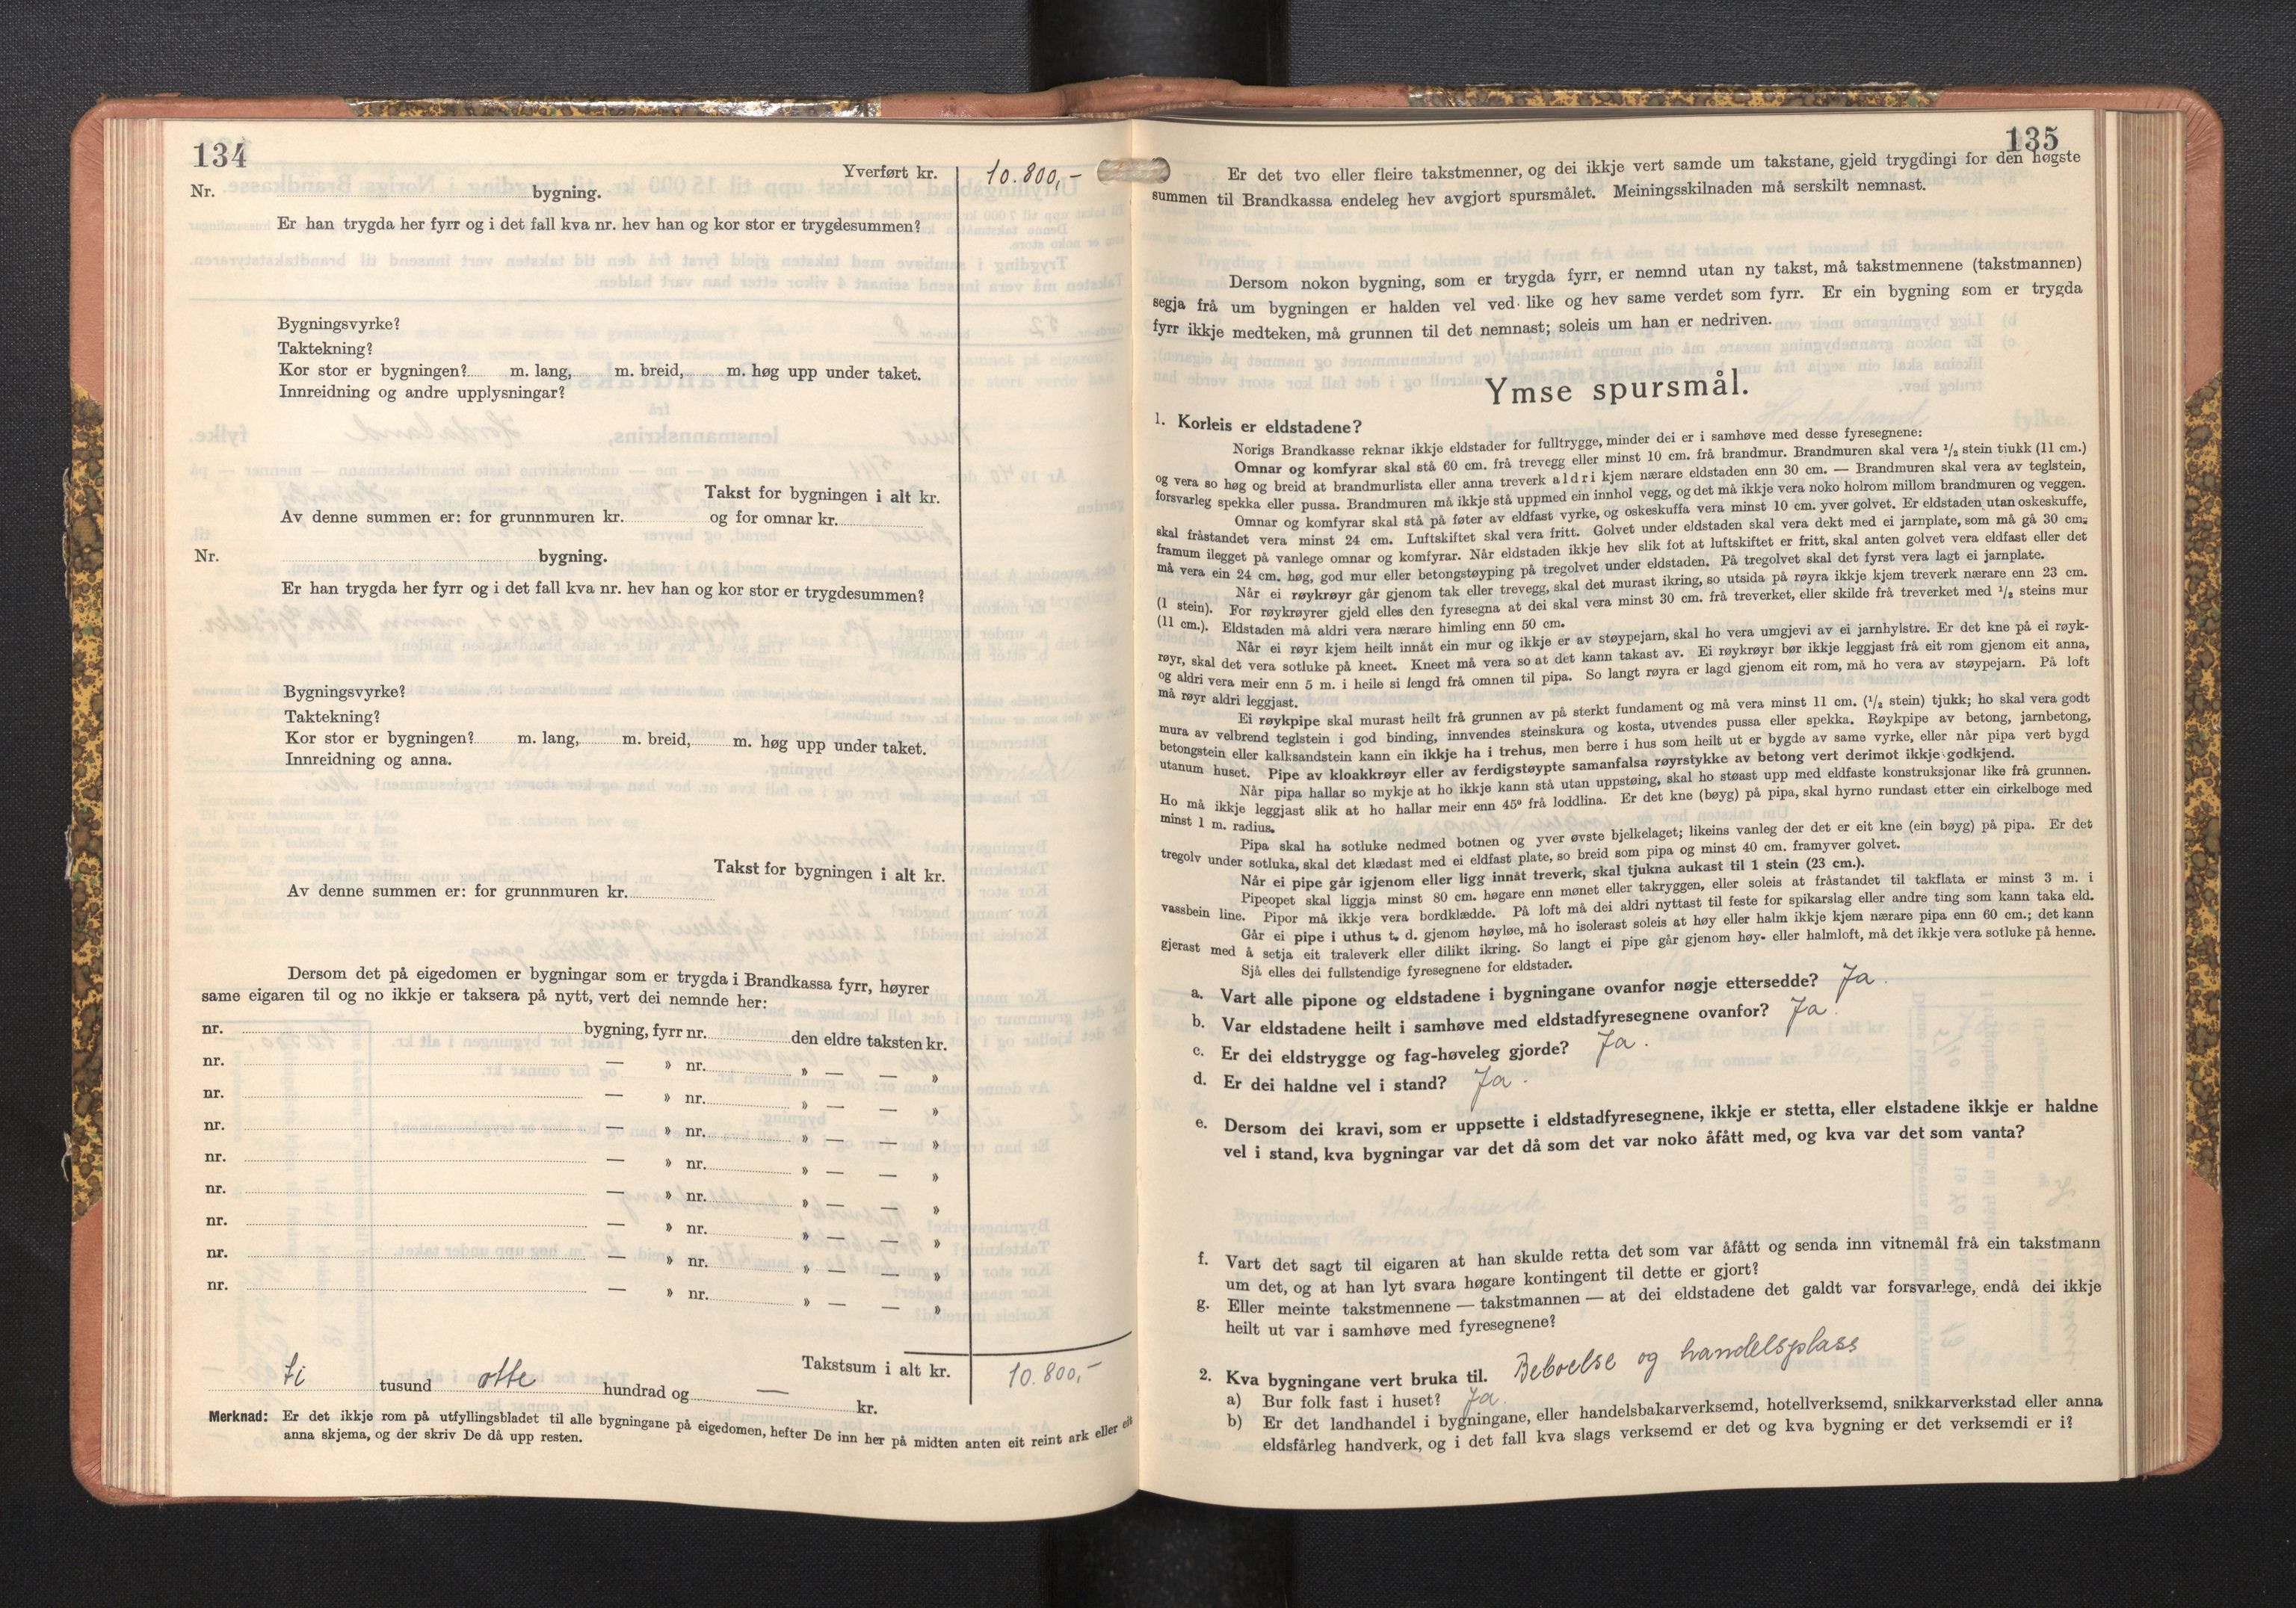 134
Yverført kr. 10.800,-
Nr. bygning.
Er han trygda her fyrr og i det fall kva nr. hev han og kor stor er trygdesummen?
Bygningsvyrke?
Taktekning?
Kor stor er bygningen? m. lang, m. breid, m. høg upp under taket.
Innreidning og andre upplysningar?
Takst for bygningen i alt kr.
Av denne summen er: for grunnmuren kr. og for omnar kr.
Nr. bygning.
Er han trygda her fyrr og i det fall kva nr. hev han og kor stor er trygdesummen?
Bygningsvyrke?
Taktekning?
Kor stor er bygningen? m. lang, m. breid, m. høg upp under taket.
Innreidning og anna.
Takst for bygningen i alt kr.
Av denne summen er: for grunnmuren kr.
Dersom det på eigedomen er bygningar som er trygda i Brandkassa fyrr, høyrer
same eigaren til og no ikkje er taksera på nytt, vert dei nemnde her:
nr. bygning, fyrr nr. den eldre taksten kr.
nr. — » nr. » — — »
nr. — » nr. » — — »
nr. — » nr. » — — »
nr. — » nr. » — — »
nr. — » nr. » — — »
nr. — » nr. » — — »
nr. — » nr. » — — »
nr. — » nr. » — — »
Takstsum i alt kr. 10.800,-
ti tusund otte hundrad og — kr.
Merknad: Er det ikkje rom på utfyllingsbladet til alle bygningane på eigedomen, hefter De inn her på midten anten eit reint ark eller eit
anna skjema, og der skriv De då upp resten.
135
Er det tvo eller fleire takstmenner, og dei ikkje vert samde um takstane, gjeld trygdingi for den høgste
summen til Brandkassa endeleg hev avgjort spursmålet. Meiningsskilnaden må serskilt nemnast.
Dersom nokon bygning, som er trygda fyrr, er nemnd utan ny takst, må takstmennene (takstmannen)
segja frå um bygningen er halden vel ved like og hev same verdet som fyrr. Er ein bygning som er trygda
fyrr ikkje medteken, må grunnen til det nemnast; soleis um han er nedriven.
Ymse spursmål.
1. Korleis er eldstadene?
Norigs Brandkasse reknar ikkje eldstader for fulltrygge, minder dei er i samhøve med desse fyresegnene:
Omnar og komfyrar skal stå 60 cm. frå trevegg eller minst 10 cm. frå brandmur. Brandmuren skal vera 1/2 stein tjukk (11 cm.)
og vera so høg og breid at brandmurlista eller anna treverk aldri kjem nærare eldstaden enn 30 cm. — Brandmuren skal vera av teglstein,
forsvarleg spekka eller pussa. Brandmuren må ikkje stå uppmed ein innhol vegg, og det må ikkje vera noko holrom millom brandmuren og veggen.
Omnar og komfyrar skal stå på føter av eldfast vyrke, og oskeskuffa vera minst 10 cm. yver golvet. Er eldstaden utan oskeskuffe,
skal fråstandet vera minst 24 cm. Luftskiftet skal vera fritt. Golvet under eldstaden skal vera dekt med ei jarnplate, som må gå 30 cm.
framum ilegget på vanlege omnar og komfyrar. Når eldstaden ikkje hev slik fot at luftskiftet er fritt, skal anten golvet vera eldfast eller det
må vera ein 24 cm. høg, god mur eller betongstøyping på tregolvet under eldstaden. På tregolvet skal det fyrst vera lagt ei jarnplate.
Når ei røykrøyr går gjenom tak eller trevegg, skal det murast ikring, so utsida på røyra ikkje kjem treverk nærare enn 23 cm.
(1 stein). For røykrøyrer gjeld elles den fyresegna at dei skal vera minst 30 cm. frå treverket, eller skilde frå treverket med 1/2 steins mur
(11 cm.). Eldstaden må aldri vera nærare himling enn 50 cm.
Når ei røyr kjem heilt innåt ein mur og ikkje er av støypejarn, skal ho vera umgjevi av ei jarnhylstre. Er det kne på ei røyk-
røyr, skal det vera sotluke på kneet. Kneet må vera so at det kann takast av. Ei røykrøyr bør ikkje leggjast frå eit rom gjenom eit anna,
og aldri vera meir enn 5 m. i heile si lengd frå omnen til pipa. So langt røyra er lagd gjenom eit rom, må ho vera av støypejarn. På loft
må røyr aldri leggjast.
Ei røykpipe skal murast heilt frå grunnen av på sterkt fundament og må vera minst 11 cm. (1/2 stein) tjukk; ho skal vera godt
mura av velbrend teglstein i god binding, innvendes steinskura og kosta, utvendes pussa eller spekka. Røykpipe av betong, jarnbetong,
betongstein eller kalksandstein kann ein ikkje ha i trehus, men berre i hus som heilt ut er bygde av same vyrke, eller når pipa vert bygd
utanum huset. Pipe av kloakkrøyr eller av ferdigstøypte samanfalsa røyrstykke av betong vert derimot ikkje godkjend.
Når pipa hallar so mykje at ho ikkje kann stå utan uppstøing, skal ho støast upp med eldfaste konstruksjonar like frå grunnen.
Ho må ikkje leggjast slik at ho hallar meir enn 45° frå loddlina. Er det kne (bøyg) på pipa, skal hyrno rundast etter ein cirkelboge med
minst 1 m. radius.
Pipa skal ha sotluke nedmed botnen og yver øvste bjelkelaget; likeins vanleg der det er eit kne (ein bøyg) på pipa. Er det
tregolv under sotluka, skal det klædast med ei eldfast plate, so breid som pipa og minst 40 cm. framyver golvet.
Når ei pipe går igjenom eller ligg innåt treverk, skal tjukna aukast til 1 stein (23 cm.).
Pipeopet skal liggja minst 80 cm. høgare enn mønet eller takryggen, eller soleis at fråstandet til takflata er minst 3 m. i
vassbein line. Pipor må ikkje vera bordklædde. På loft må dei aldri nyttast til feste for spikarslag eller andre ting som kann taka eld.
Går ei pipe i uthus t. d. gjenom høyløe, må ho isolerast soleis at høy eller halm ikkje kjem nærare pipa enn 60 cm.; det kann
gjerast med å setja eit traleverk eller dilikt ikring. So langt ei pipe går gjenom høy- eller halmloft, må det ikkje vera sotluke på henne.
Sjå elles dei fullstendige fyresegnene for eldstader.
a. Vart alle pipone og eldstadene i bygningane ovanfor nøgje ettersedde? Ja.
b. Var eldstadene heilt i samhøve med eldstadfyresegnene ovanfor? Ja.
c. Er dei eldstrygge og fag-høveleg gjorde? Ja.
d. Er dei haldne vel i stand? Ja.
e. Dersom dei kravi, som er uppsette i eldstadfyresegnene, ikkje er stetta, eller elstadene ikkje er haldne
vel i stand, kva bygningar var det då som det var noko åfått med, og kva var det som vanta?
f. Vart det sagt til eigaren at han skulde retta det som var åfått og senda inn vitnemål frå ein takstmann
um det, og at han lyt svara høgare kontingent til dette er gjort?
g. Eller meinte takstmennene — takstmannen — at dei eldstadene det galdt var forsvarlege, endå dei ikkje
heilt ut var i samhøve med fyresegnene?
2. Kva bygningane vert bruka til. Beboelse og handelsplass
a) Bur folk fast i huset? Ja.
b) Er det landhandel i bygningane, eller handelsbakarverksemd, hotellverksemd, snikkarverkstad eller anna
eldsfårleg handverk, og i det fall kva slags verksemd er det og kva bygning er det verksemdi er i?